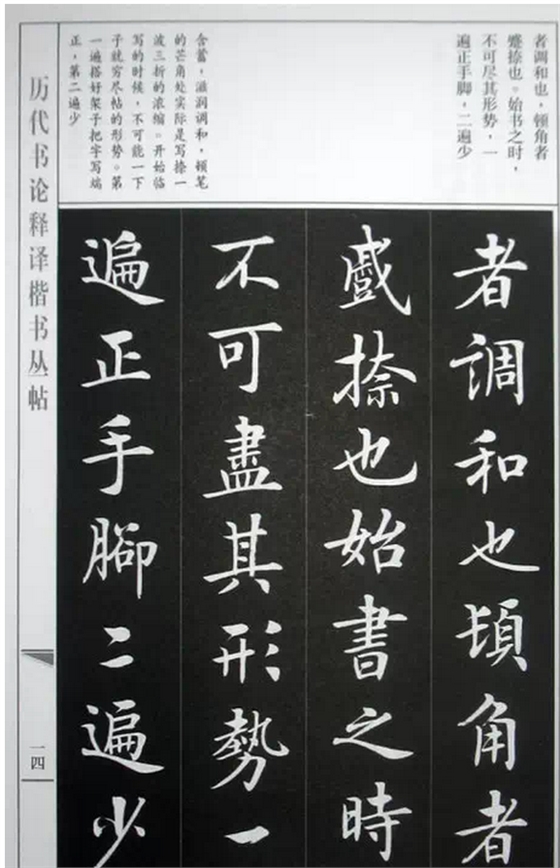 者调和也，顿角者
蹙捺也。始书之时，
不可尽其形势，一
遍正手脚，二遍少
含蓄，滋润调和，顿笔
的芒角处实际是写捺一
波三折的浓缩。开始临
写的时候，不可能一下
子就穷尽帖的形势。第
一遍搭好架子把字写端
正，第二遍少
者調和也頓角者
戚捺也始書之時
不可盡其形勢一
遍正手腳二遍少
历代书论释译楷书丛帖
一四